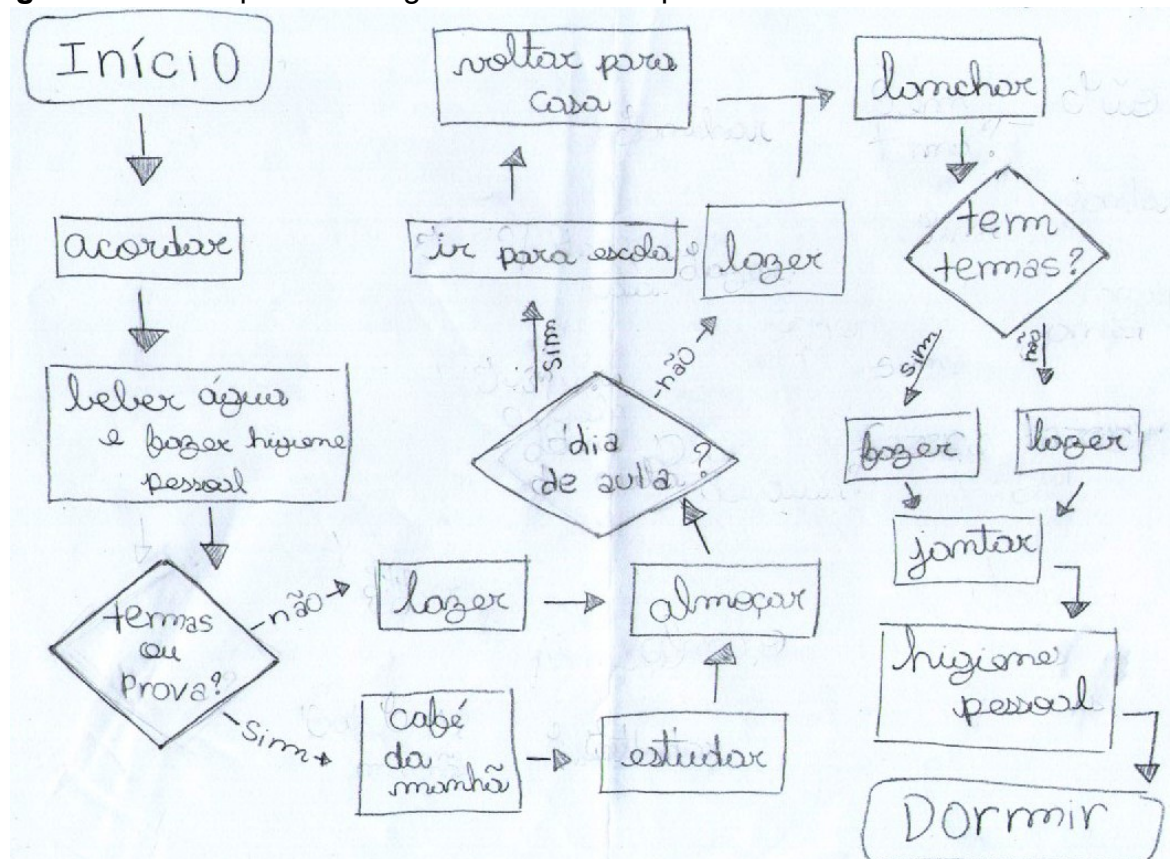 Início
acordar
beber água
e fazer higiene
pessoal
temas
ou
prova?
não
lazer
sim
café
da
manhã
estudar
almoçar
dia
de aula?
sim
ir para escola
voltar para
casa
não
lazer
lanchar
tem
temas?
sim
fazer
não
lazer
jantar
higiene
pessoal
Dormir